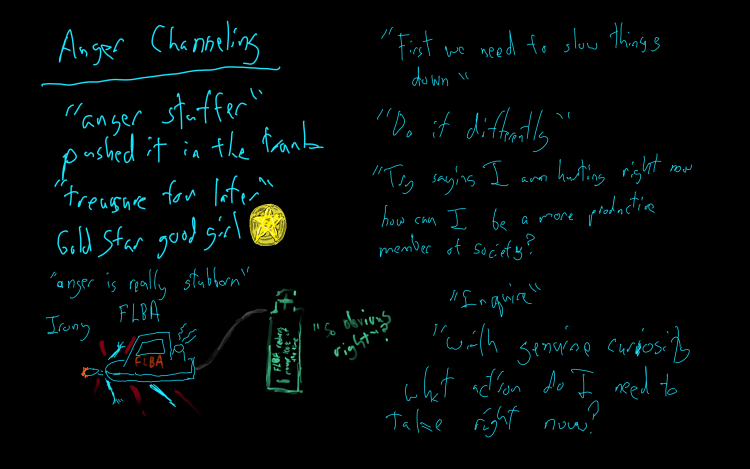 Anger Channeling
"anger stuffer"
pushed it in the trunk
"treasure for later"
Gold Star good girl
"anger is really stubborn"
FLBA
Irony
FLBA
FLBA
"so obvious
right"?
"First we need to slow things
down"
"Do it differently"
"Try saying I am hurting right now
how can I be a more productive
member of society?
"Inquire"
"with genuine curiosity
what action do I need to
take right now?